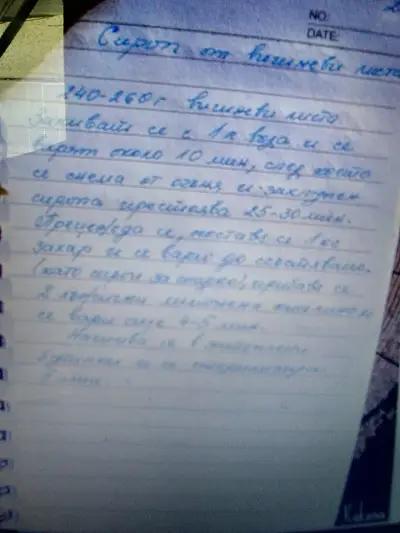 NO:
DATE:
Сироп от вишневи листа
240-260 г вишневи листа
Заливат се с 1 л вода и се
варят около 10 мин, след което
се снема от огъня и захлупен
сиропа престоява 25-30 мин.
Прецежда се, поставя се 1 кг
захар и се вари до сгъстяване
(като сироп за сладко), прибавя се
2 лъжички лимонена киселина и
се вари още 4-5 мин.
Налива се в
буркани и се